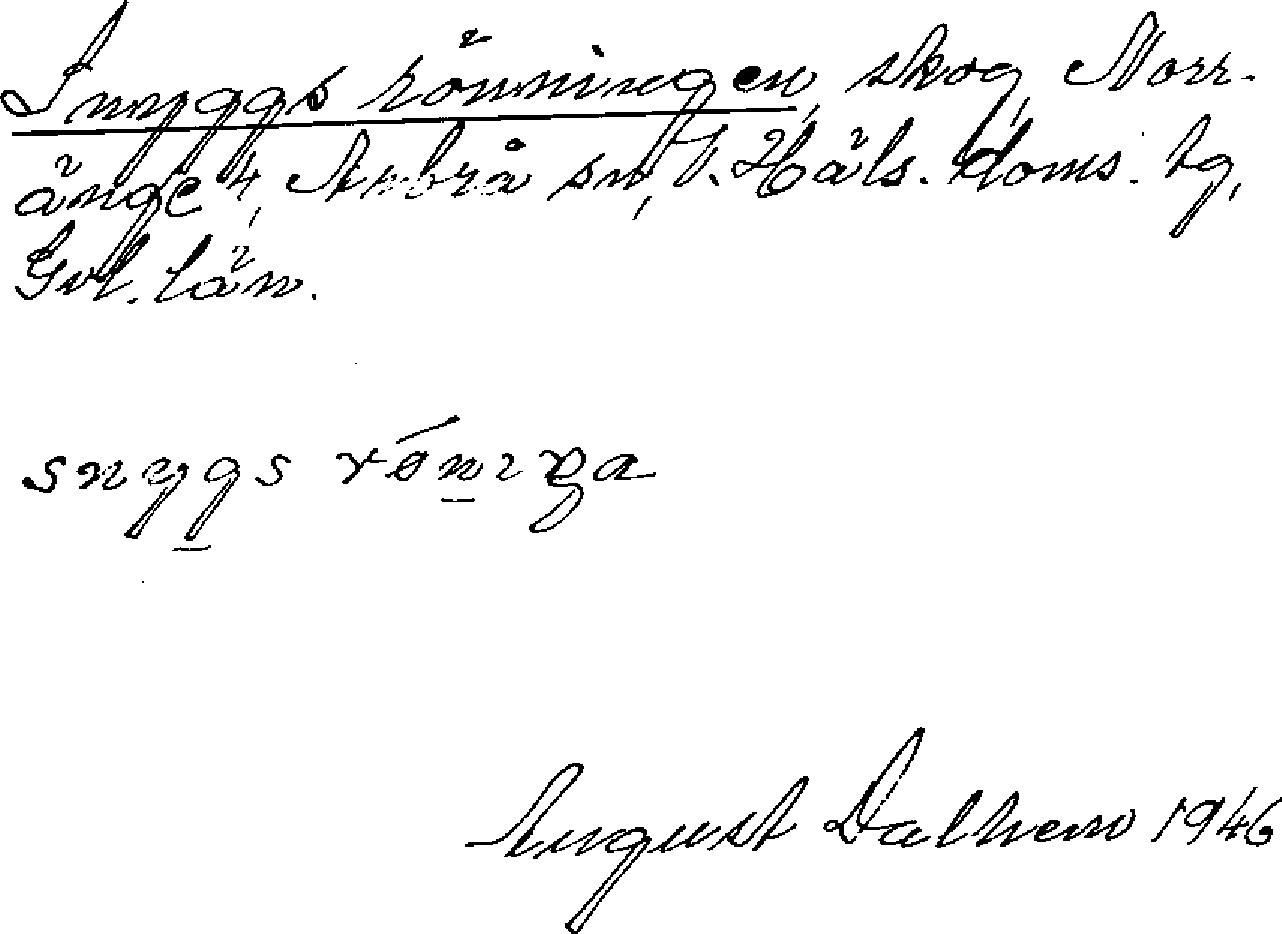 Snyggs rönningen, skog, Norr-
änge 4, Arbrå sn, V. Häls. doms. tg,
Gvl. län.
snyggs rö́nıŋa
August Dalhem 1946